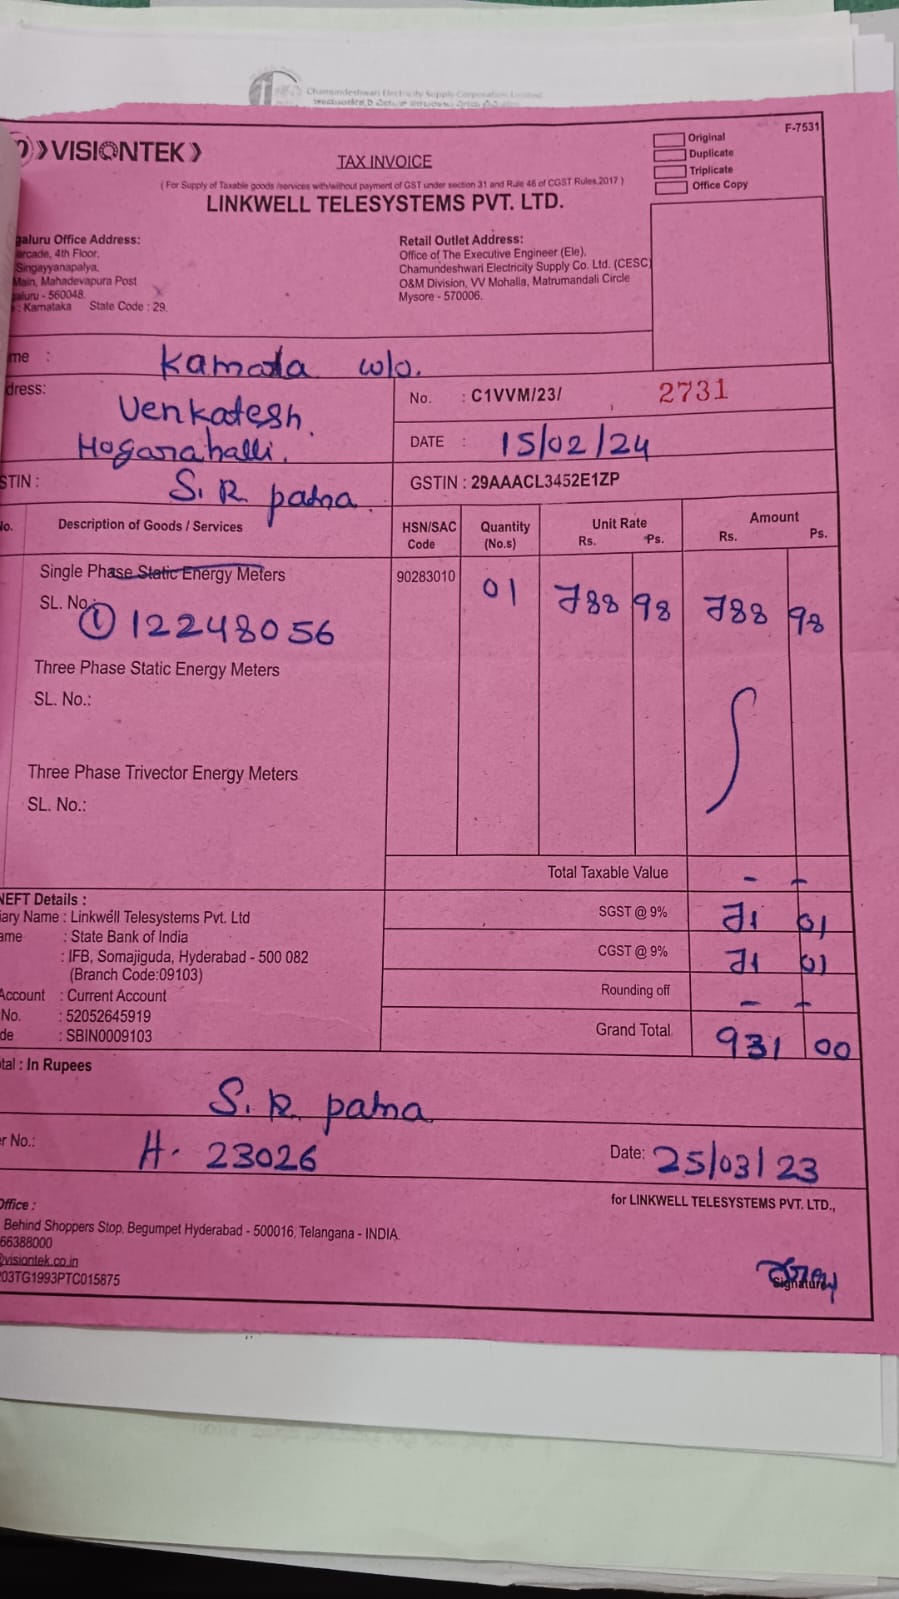 Chamundeshwari Electricity Supply Corporation Limited
VISIONTEK
F-7531
Original
Duplicate
Triplicate
Office Copy
TAX INVOICE
( For Supply of Taxable goods /services with/without payment of GST under section 31 and Rule 46 of CGST Rules,2017 )
LINKWELL TELESYSTEMS PVT. LTD.
galuru Office Address:
arcade, 4th Floor,
Singayyanapalya,
Main, Mahadevapura Post
aluru - 560048.
: Karnataka State Code : 29.
Retail Outlet Address:
Office of The Executive Engineer (Ele),
Chamundeshwari Electricity Supply Co. Ltd. (CESC)
O&M Division, VV Mohalla, Matrumandali Circle
Mysore - 570006.
me : Kamala w/o.
dress: Venkatesh.
Hogarahalli.
S. R. patna.
No. : C1VVM/23/ 2731
DATE : 15/02/24
STIN :
GSTIN : 29AAACL3452E1ZP
No. Description of Goods / Services HSN/SAC Code Quantity (No.s) Unit Rate Rs. Ps. Amount Rs. Ps.
Single Phase Static Energy Meters 90283010 01 788 98 788 98
SL. No.: ① 12248056
Three Phase Static Energy Meters
SL. No.:
Three Phase Trivector Energy Meters
SL. No.:
Total Taxable Value - -
SGST @ 9% 71 01
CGST @ 9% 71 01
Rounding off - -
Grand Total 931 00
NEFT Details :
iary Name : Linkwell Telesystems Pvt. Ltd
ame : State Bank of India
: IFB, Somajiguda, Hyderabad - 500 082
(Branch Code:09103)
Account : Current Account
No. : 52052645919
de : SBIN0009103
tal : In Rupees
S. R. patna
r No.: H. 23026 Date: 25/03/23
Office : for LINKWELL TELESYSTEMS PVT. LTD.,
Behind Shoppers Stop, Begumpet Hyderabad - 500016, Telangana - INDIA.
66388000
@visiontek.co.in
03TG1993PTC015875
Signature